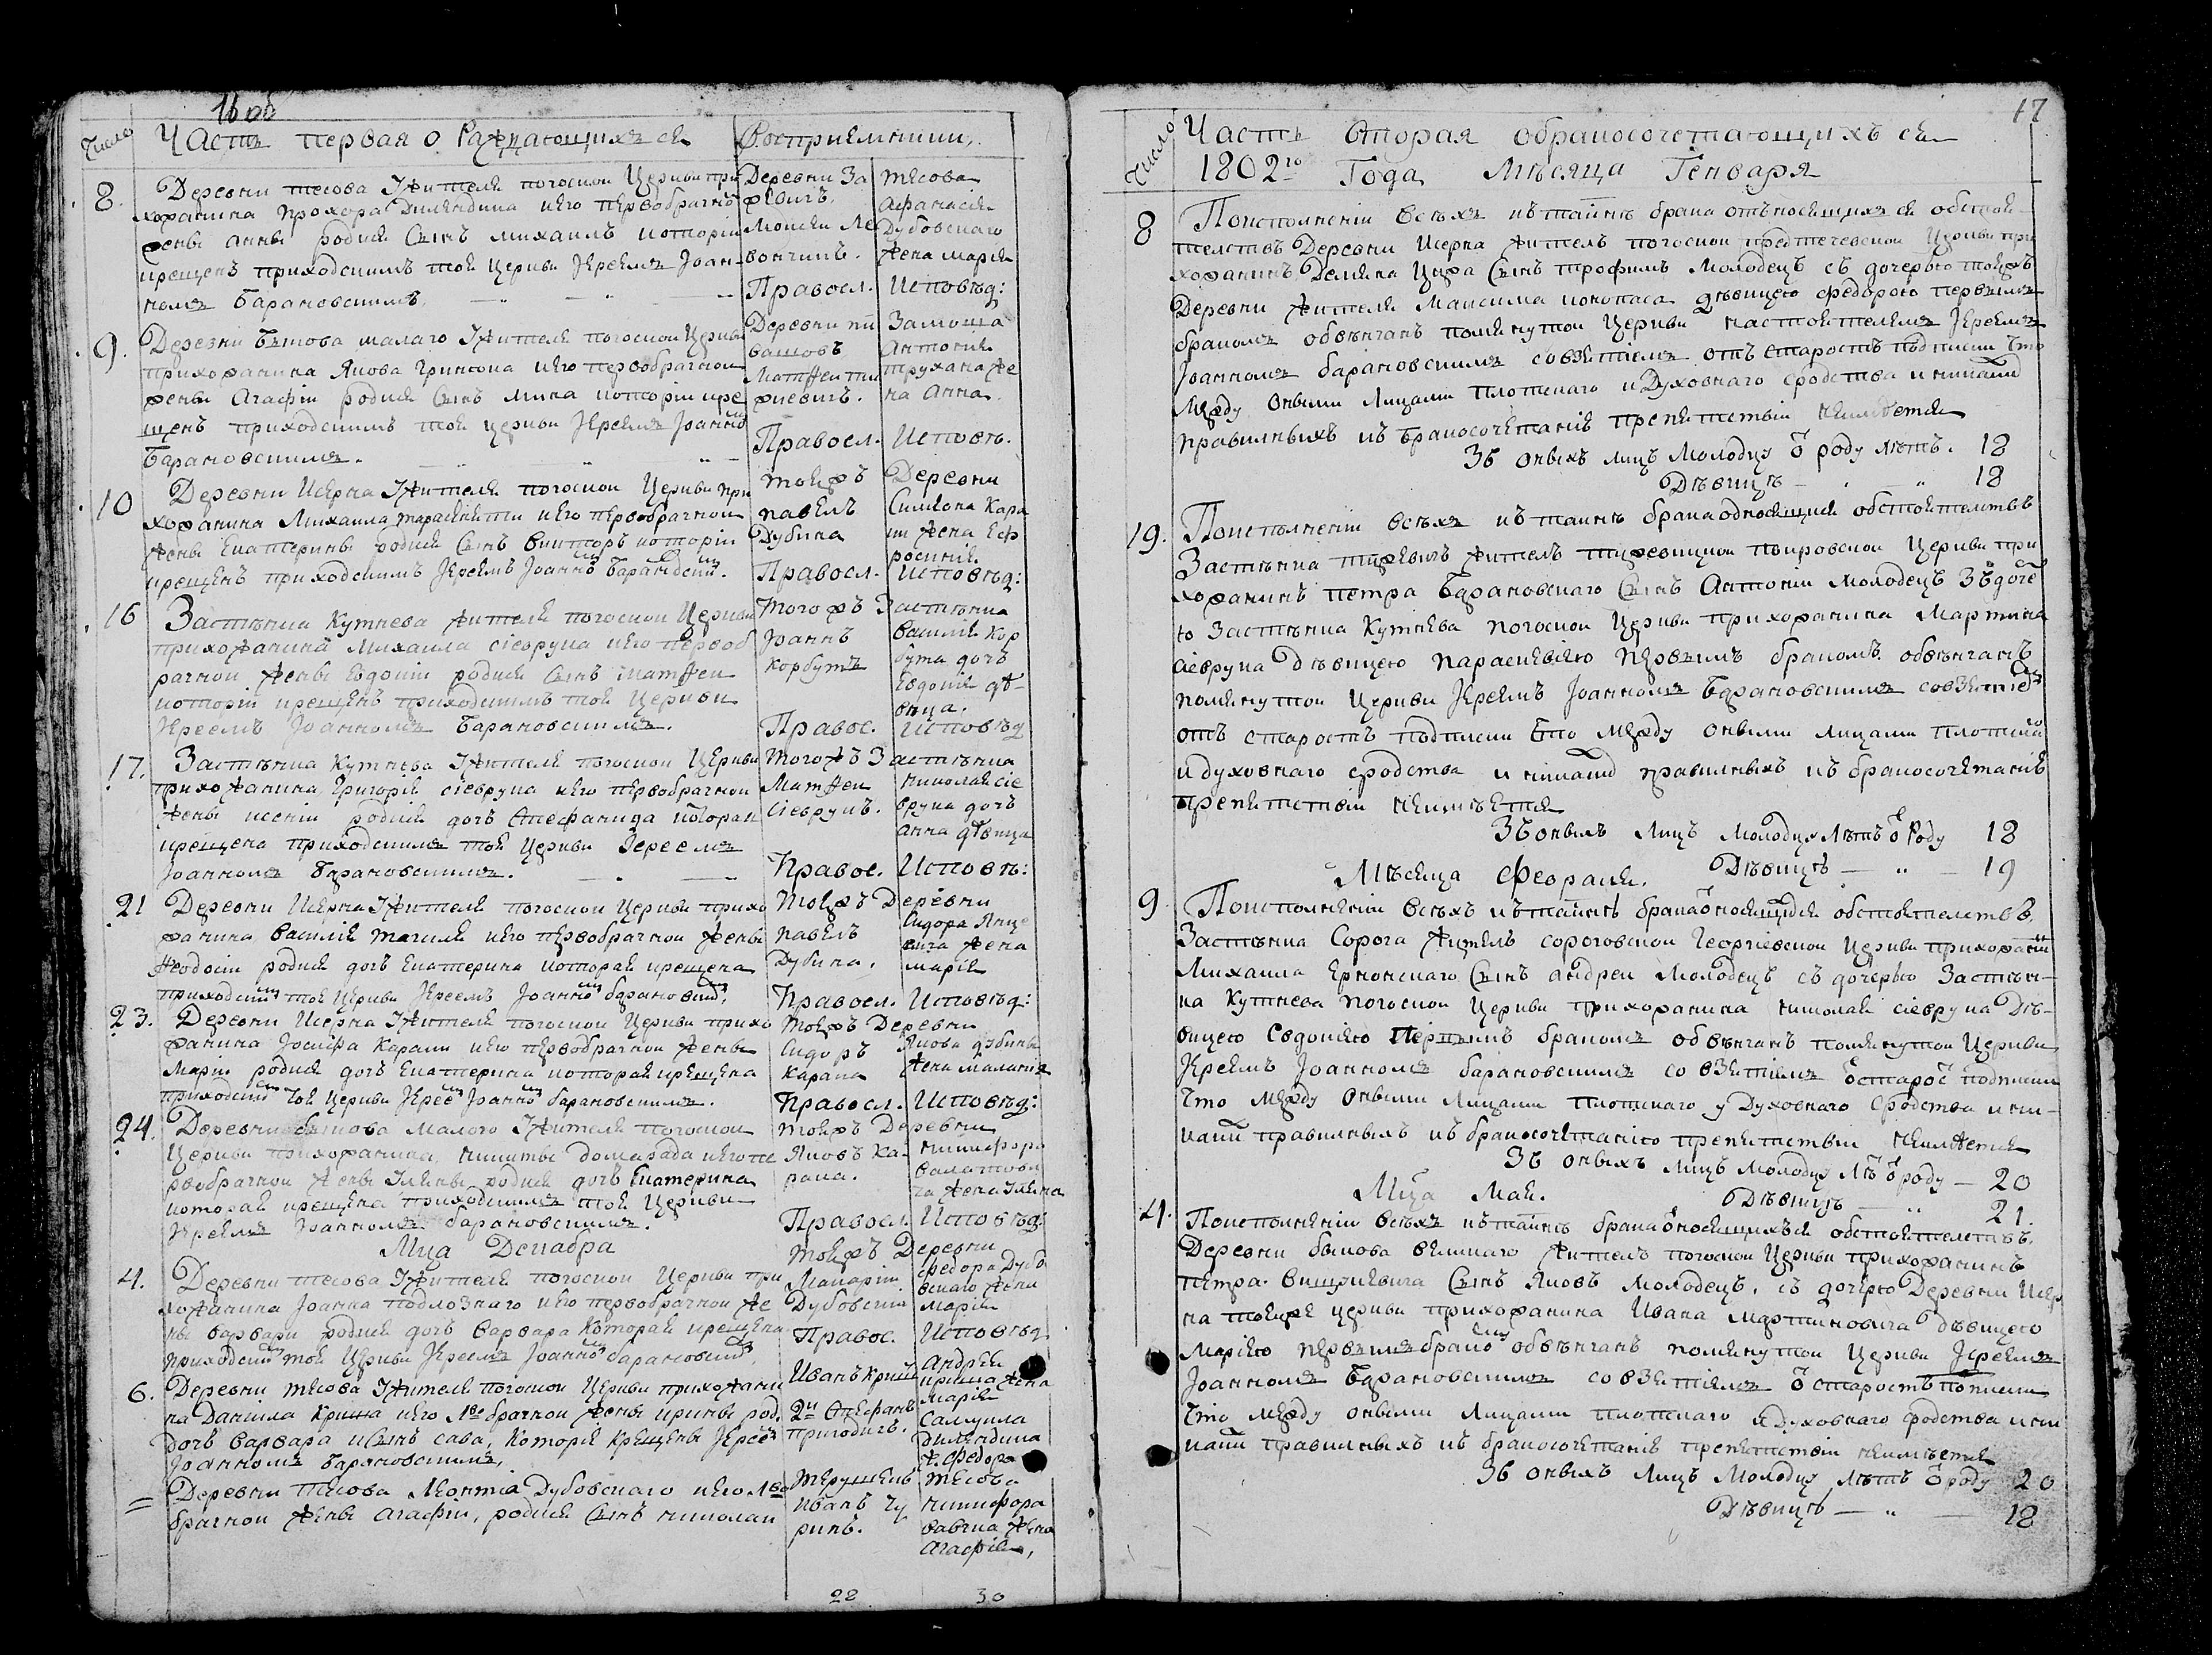 16 об
Число
Часть первая о Раждающихся
Восприемники,
8.
Деревни тесова Жителя погоской Церкви при
хожанина прохора Дилендика иего первобрачной
жены анны родися Сынъ михаилъ которій
крещенъ приходскимъ той Церкви Іереемъ Іоан-
номъ Барановскимъ
Деревни За
Моисей Ле
вончикъ.
Правосл.
тесова
афанасія
Дубовскаго
жена марія
Исповѣд:
9.
Деревни Бытова малаго Жителя погоской Церкви
прихожанина Якова Гринкова иего первобрачной
жены Агафіи родися Сынъ мина которій кре
щенъ приходскимъ той церкви Іереемъ Іоанно
Барановскимъ.
Деревни пи
вашовъ
Матѳей
Правосл.
Замоша
Антонія
трухана же
на Анна.
Исповѣ.
10
Деревни Исерна Жителя погоской Церкви при
хожанина Михаила иего первобрачной
жены Екатерины родися Сынъ Викторъ которій
крещенъ приходскимъ Іереемъ Іоанно Барановски.
тойжъ
павелъ
Дубина
Правосл.
Деревни
Симеона Кара
ки жена Еф
росинія.
Исповѣд:
16
Застѣнка Кутнева жителя погоской Церкви
прихожанина Михаила сіеврука иего первоб
рачной жены Евдокіи родися Сынъ матѳей
которій крещенъ приходскимъ той Церкви
Іереемъ Іоанномъ Барановскимъ.
Тогожъ Застѣнка
Іоаннъ
Корбутъ
Правос.
Василія Кор
бута дочъ
Евдокія дѣ-
вица.
Исповѣд
17.
Застѣнка Кутнева Жителя погоской Церкви
прихожанина Григорія сіеврука иего первобрачной
жены ксеніи родися дочъ Стефанида которая
крещена приходскимъ той Церкви Іереемъ
Іоанномъ Барановскимъ.
тогожъ Застѣнка
Матѳей
Сіеврукъ.
Правос.
николая сіе
врука дочъ
анна дѣвица
Исповѣ:
21
Деревни Исерна Жителя погоской Церкви прихо
жанина Василія иего первобрачной жены
Ѳеодосіи родися дочъ Екатерина которая крещена
приходски той Церкви Іереемъ Іоанно барановски.
тойжъ Деревни
павелъ
Дубина.
Правосл.
Сидора Янце
вича жена
марія
Исповѣд:
23.
Деревни Исерна Жителя погоской Церкви прихо
жанина Іосифа Караки иего первобрачной жены
Маріи родися дочъ Екатерина которая крещена
приходски той Церкви Іерее Іоанно барановскимъ.
тойжъ Деревни
Сидоръ
Карака
Правосл.
Якова дубины
жена маланія
Исповѣд:
24.
Деревни бытова Малого Жителя погоской
Церкви прихожанина, никиты домарада иего пе
рвобрачной жены родися дочъ Екатерина
которая крещена приходскимъ той Церкви
Іереемъ Іоанномъ барановскимъ.
тойжъ Деревни
Яковъ Ка-
рака.
Правосл.
никифора
жена
Исповѣд:
Мца Декабра
4.
Деревни тесова Жителя погоской Церкви при
хожанина Іоанна подлозного иего первобрачной же
ны варвари родися дочъ Варвара Которая крещена
приходски той Церкви Іереемъ Іоанно барановски
тойжъ Деревни
Макарій
Дубовскій
Правос.
федора Дубо
вскаго жена
марія
Исповѣд
6.
Деревни тесова Жителя погоской Церкви прихожани
на Даніила Криша иего 1во брачной жены ирины род.
Дочъ варвара исынъ сава, Которіе Крещены Іерее
Іоанномъ барановскимъ.
Иванъ Кришъ
2й Стефанъ
пригодичъ.
Андрея
криша жена
марія
Самуила
Дилендика
ж. федора
=
Деревни тесова Леонтіа Дубовскаго иего 1во
брачной жены агафіи, родися Сынъ николай
Иванъ Чу
рикъ.
тесова
никифора
жена
агафія,
28
30
17
Число
Часть вторая обракосочетающихъся
1802го Года Мѣсяца Генваря
8
Поисполненіи Всѣхъ кътайнѣ брака отъносящихся обстоя-
телствъ Деревни Исерна житель погоской предтечевской Церкви при
хожанинъ Демяна Сынъ трофимъ Молодецъ съ дочерью тойжъ
Деревни Жителя Максима дѣвицею федорою первымъ
бракомъ обвѣнчанъ помянутой Церкви настоятелемъ Іереемъ
Іоанномъ барановскимъ совзятіемъ отъ старостъ подписи что
Между Оными Лицами Плотскаго и Духовнаго сродства и никаки
правильныхъ къ бракосочетанію препятствій неимѣется
Зъ оныхъ лицъ Молодцу ѿ роду лѣтъ. 18
Дѣвицѣ — " 18
19.
Поисполненіи всѣхъ къ тайнѣ брака односящися обстоятелствъ
Застѣнка житель покровской Церкви при
хожанинъ петра Барановскаго Сынъ Антоній Молодецъ Зъдоче
ю Застѣнка Кутнева погоской Церкви прихожанина Мартина
сіеврука дѣвицею Параскевіею первымъ бракомъ обвѣнчанъ
помянутой Церкви Іереемъ Іоанномъ Барановскимъ совзятіе
отъ старостъ подписи что между оными лицами плотска
идуховнаго сродства и никаки правильныхъ къ бракосочетаніе
препятствій неимѣется
Зъ оныхъ Лицъ Молодцу Лѣтъ ѿ Роду 18
Дѣвицѣ — " — 19
Мѣсяца февраля.
9
Поисполненіи всѣхъ кътайнѣ брака ѿносящихся обстоятелствъ,
Застѣнка Сорога житель сороговской Георгіевской Церкви прихожани
Михаила Сынъ андрей Молодецъ съ дочерью Застѣн-
ка Кутнева погоской Церкви прихожанина николая сіеврука Дѣ-
вицею Евдокіею Первымъ бракомъ обвѣнчанъ помянутой Церкви
Іереемъ Іоанномъ барановскимъ со взятіемъ ѿстарос подписи
Что Между Оными Лицами плотскаго у Духовнаго Сродства и ни-
каки правильныхъ къ бракосочетанію препятствій неимѣется
Зъ оныхъ лицъ молодцу Лѣ ѿ роду — 20
Дѣвицѣ — " 21.
Мца Мая.
4.
Поисполненіи всѣхъ кътайнѣ брака ѿносящихъся обстоятелствъ,
Деревни быкова великаго житель погоской Церкви прихожанинъ
петра Сынъ Яковъ молодецъ, съ дочерю Деревни Исер
на тоейже церкви прихожанина Ивана мартиновича дѣвицею
маріею первымъ брако обвѣнчанъ помянутой Церкви Іереемъ
Іоанномъ Барановскимъ со взятіемъ ѿ старостъ пописи
Что между оными Лицами плотскаго и духовнаго сродства и ни
каки правильныхъ къ бракосочетанію препятствій неимѣется
Зъ оныхъ Лицъ Молодцу Лѣтъ ѿ роду 20
Дѣвицѣ — " — 18